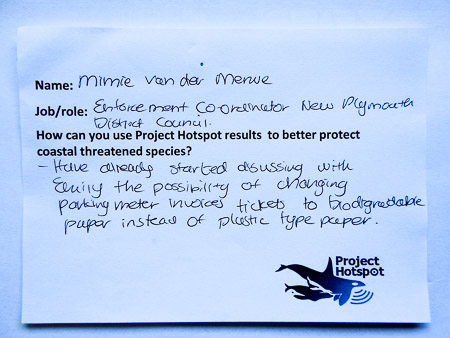 Name: Mimie van der Merwe
Job/role: Enforcement Co-ordinator New Plymouth
District Council.
How can you use Project Hotspot results to better protect
coastal threatened species?
- Have already started disussing with
Emily the possibility of changing
parking meter invoices tickets to biodigradable
paper instead of plastic type paper.
Project
Hotspot